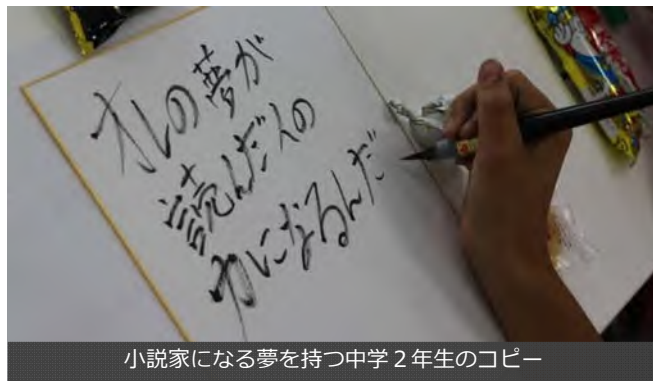 オレの夢が
読んだ人の
力になるんだ
小説家になる夢を持つ中学２年生のコピー